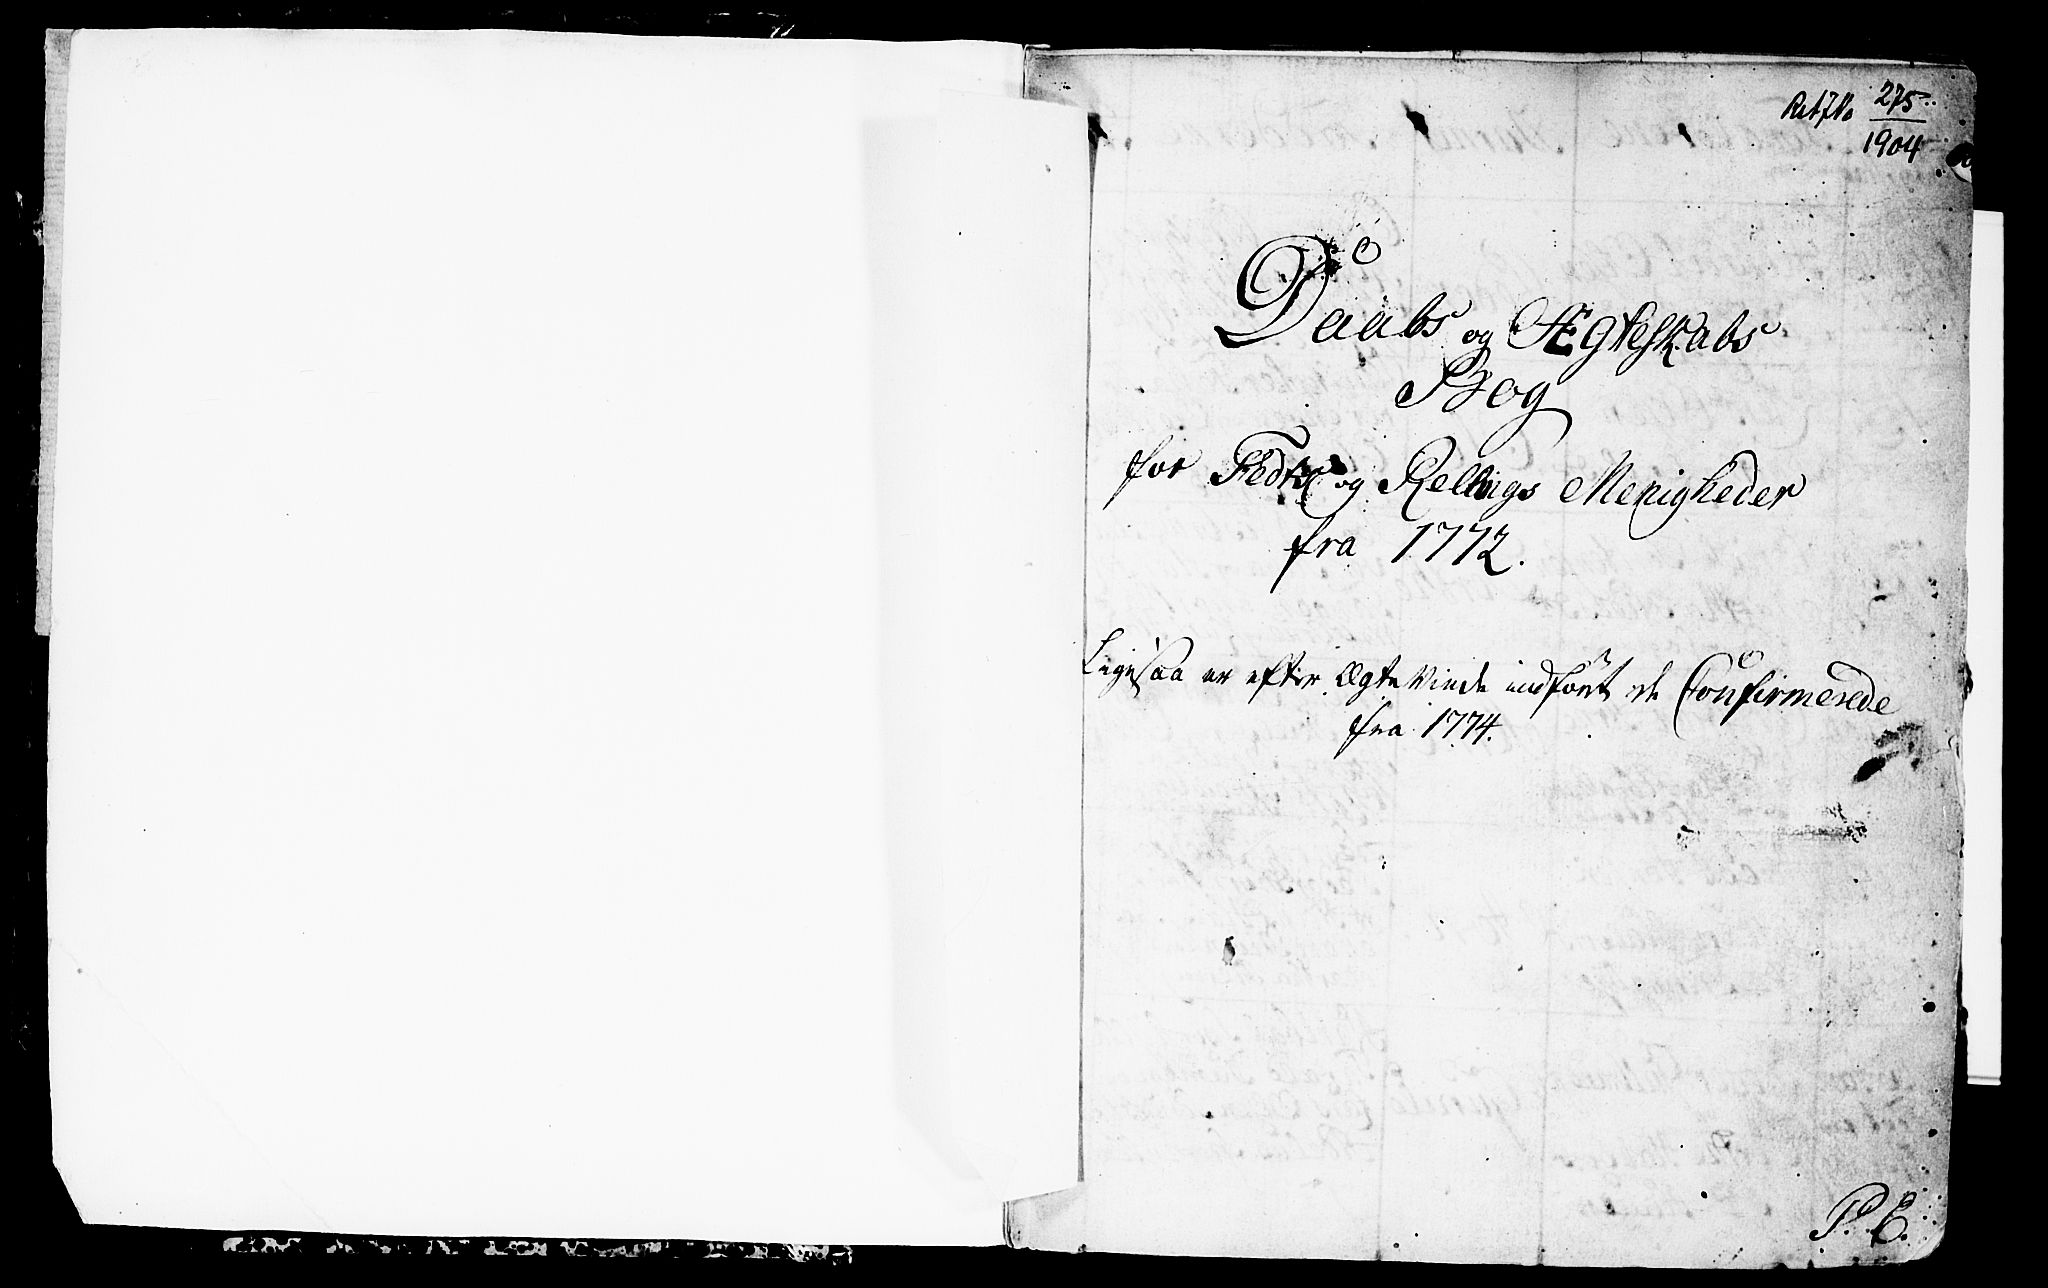 275
1904
Daabs og Ægteskabs
Bog
for og Rellings Menigheder
fra 1772.
Ligesaa er efter Ægte Viede indført de Confirmerede
fra 1774.
P. E.